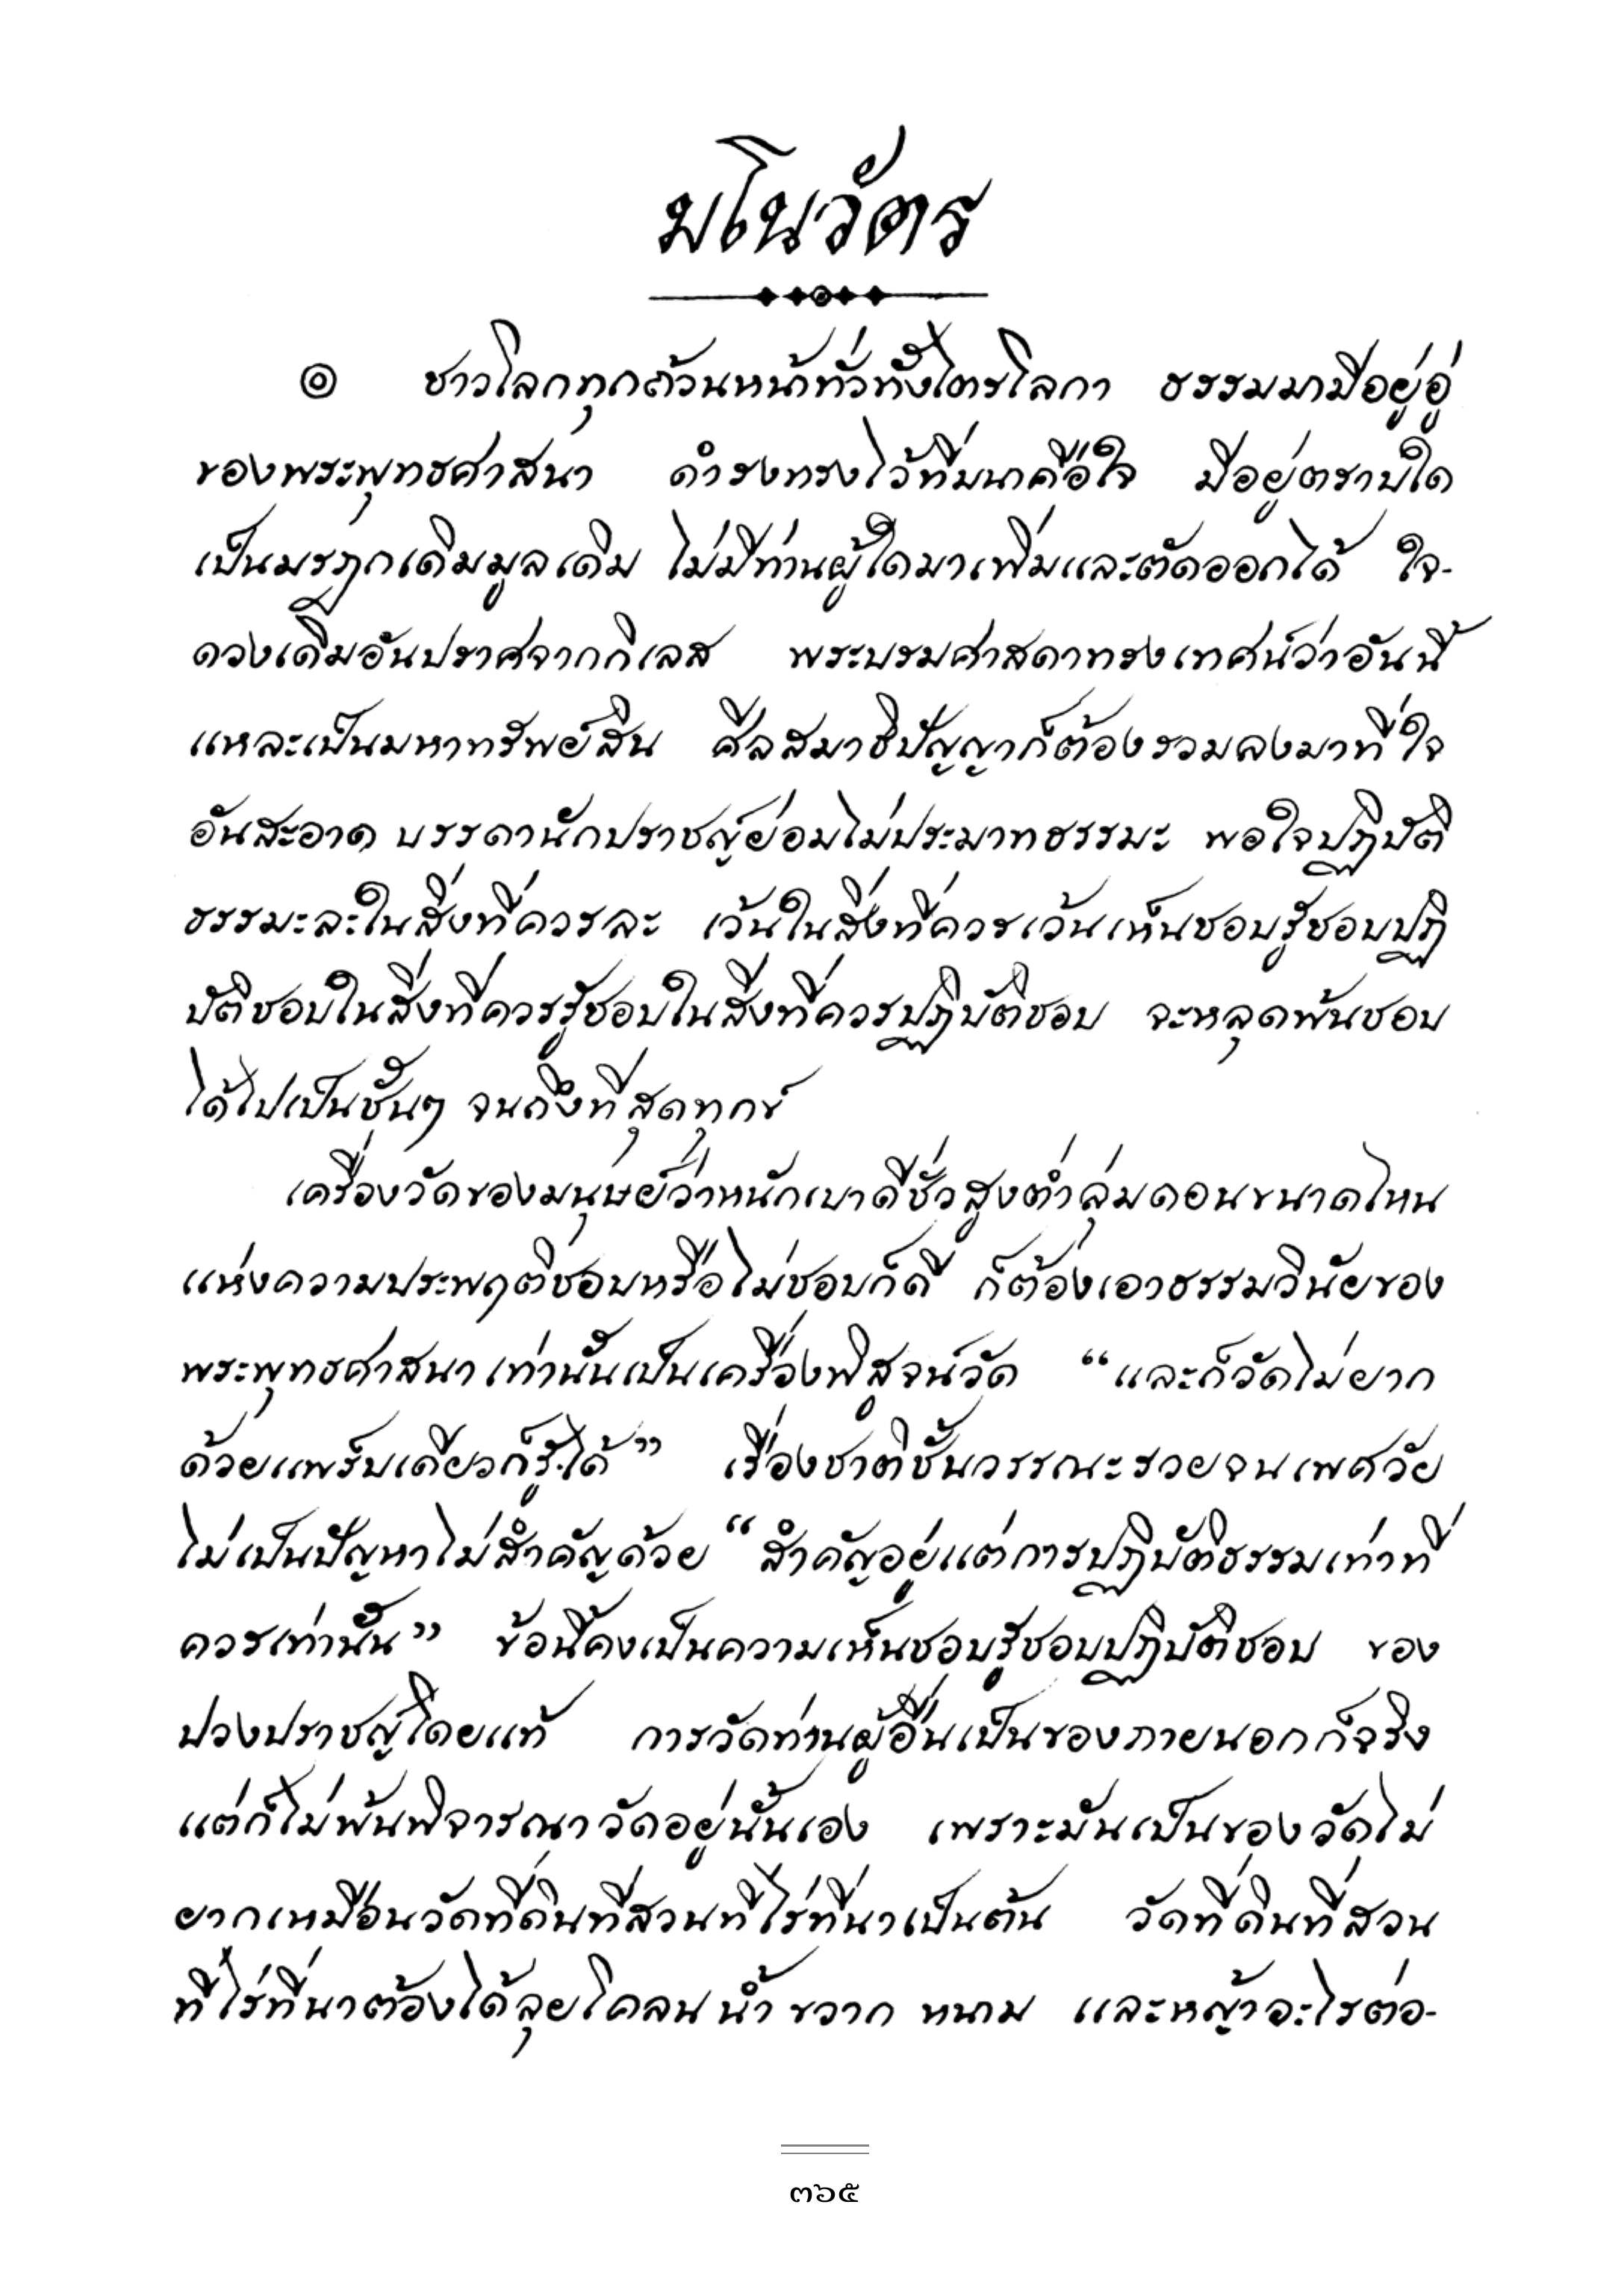 มโนวัตร
๏ ชาวโลกทุกถ้วนหน้าทั่วทั้งไตรโลกา ธรรมมามีอยู่อู่
ของพระพุทธศาสนา ดำรงทรงไว้ที่มนาคือใจ มีอยู่ตราบใด
เป็นมรฎกเดิมมูลเดิม ไม่มีท่านผู้ใดมาเพิ่มและตัดออกได้ ใจ-
ดวงเดิมอันปราศจากกิเลส พระบรมศาสดาทรงเทศน์ว่าอันนี้
แหละเป็นมหาทรัพย์สิน ศีลสมาธิปัญญาก็ต้องรวมลงมาที่ใจ
อันสะอาด บรรดานักปราชญ์ย่อมไม่ประมาทธรรมะ พอใจปฏิบัติ
ธรรมะละในสิ่งที่ควรละ เว้นในสิ่งที่ควรเว้นเห็นชอบรู้ชอบปฏิ
บัติชอบในสิ่งที่ควรรู้ชอบในสิ่งที่ควรปฏิบัติชอบ จะหลุดพ้นชอบ
ได้ไปเป็นชั้นๆ จนถึงที่สุดทุกข์
เครื่องวัดของมนุษย์ว่าหนักเบาดีชั่วสูงต่ำลุ่มดอนขนาดไหน
แห่งความประพฤติชอบหรือไม่ชอบก็ดี ก็ต้องเอาธรรมวินัยของ
พระพุทธศาสนาเท่านั้นเป็นเครื่องพิสูจน์วัด “และก็วัดไม่ยาก
ด้วยแพร็บเดียวก็รู้ได้” เรื่องชาติชั้นวรรณะรวยจนเพศวัย
ไม่เป็นปัญหาไม่สำคัญด้วย “สำคัญอยู่แต่การปฏิบัติธรรมเท่าที่
ควรเท่านั้น” ข้อนี้คงเป็นความเห็นชอบรู้ชอบปฏิบัติชอบ ของ
ปวงปราชญ์โดยแท้ การวัดท่านผู้อื่นเป็นของภายนอกก็จริง
แต่ก็ไม่พ้นพิจารณาวัดอยู่นั้นเอง เพราะมันเป็นของวัดไม่
ยากเหมือนวัดที่ดินที่สวนที่ไร่ที่นาเป็นต้น วัดที่ดินที่สวน
ที่ไร่ที่นาต้องได้ลุยโคลน น้ำ ขวาก หนาม และหญ้าอะไรต่อ-
๓๖๕